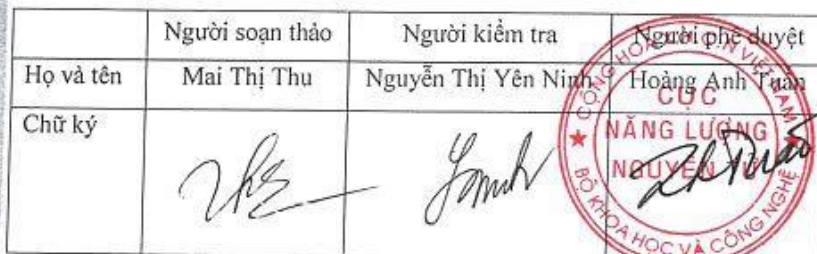 Người soạn thảo Người kiểm tra Người phê duyệt
Họ và tên Mai Thị Thu Nguyễn Thị Yên Ninh Hoàng Anh Tuấn
Chữ ký
CỤC
NĂNG LƯỢNG
NGUYÊN TỬ
BỘ KHOA HỌC VÀ CÔNG NGHỆ